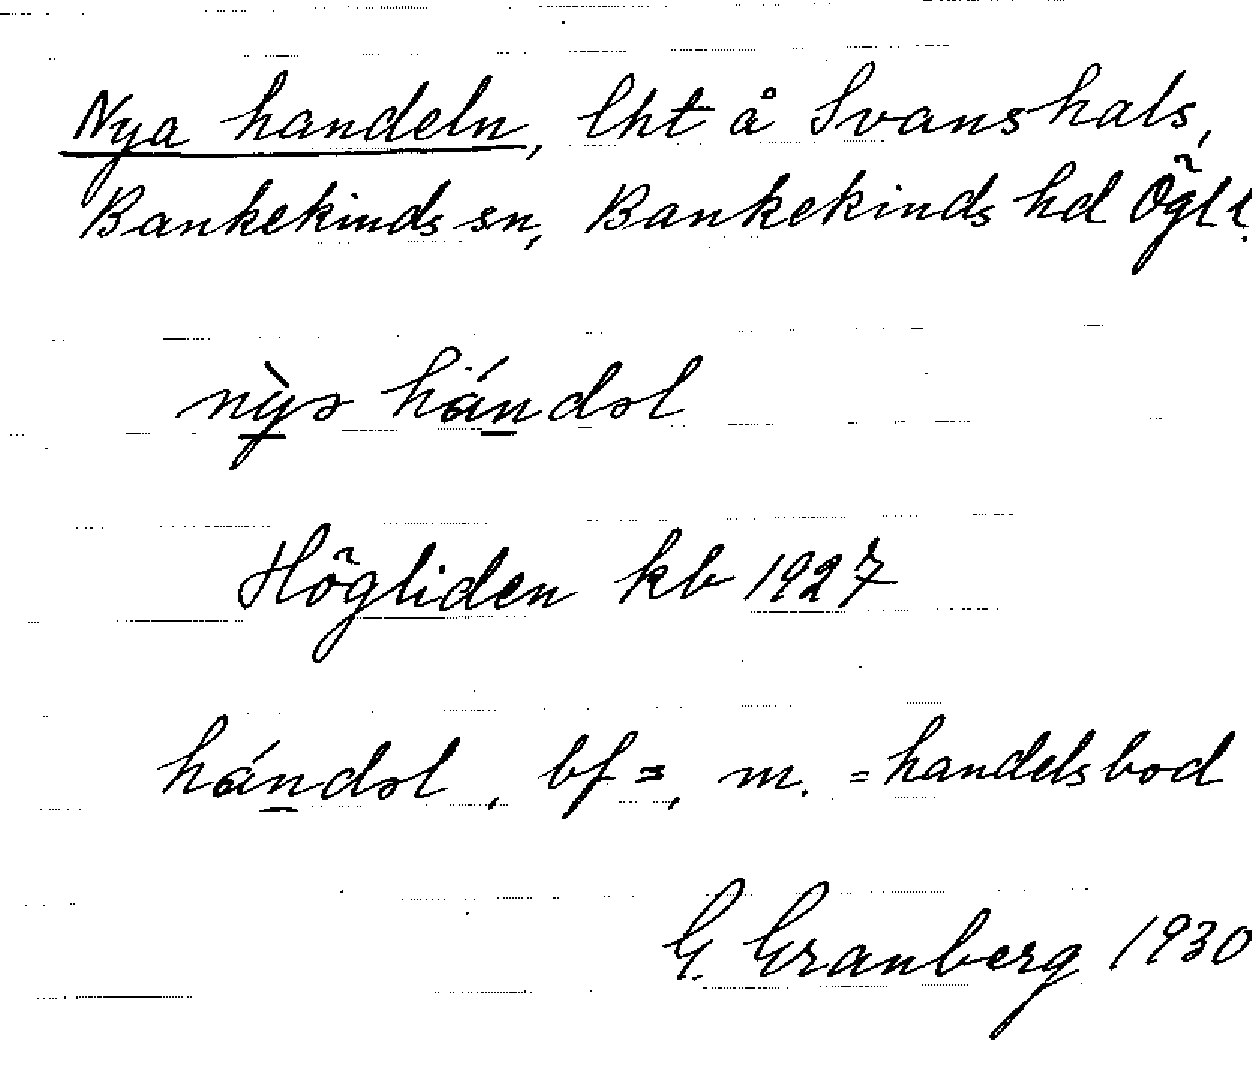 Nya handeln, lht å Svanshals,
Bankekinds sn, Bankekinds hd Ögtl.
nỳə hándəl
Högliden kb 1927
hándəl, bf =, m. = handelsbod
G. Granberg 1930